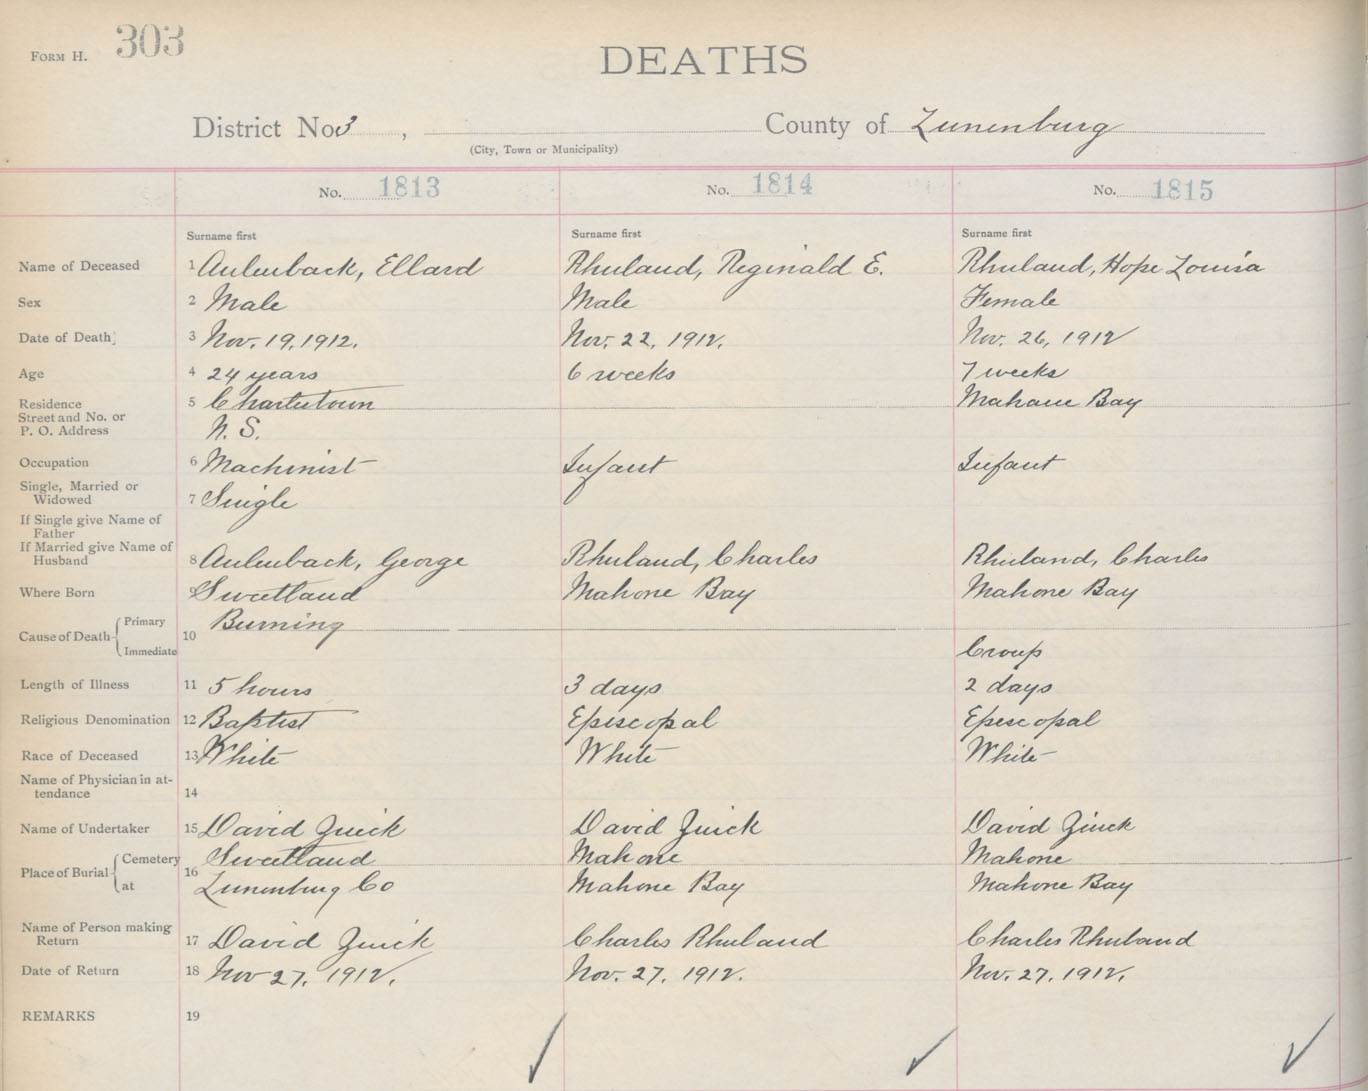 FORM H. 303
DEATHS
District No. 3, County of Lunenburg
(City, Town or Municipality)
No. 1813 No. 1814 No. 1815
Surname first Surname first Surname first
Name of Deceased 1 Aulenback, Ellard Rhuland, Reginald E. Rhuland, Hope Louisa
Sex 2 Male Male Female
Date of Death 3 Nov. 19, 1912. Nov. 22, 1912. Nov. 26, 1912
Age 4 24 years 6 weeks 7 weeks
Residence 5 Mahone Bay
Street and No. or
P. O. Address N. S.
Occupation 6 Machinist Infant Infant
Single, Married or
Widowed 7 Single
If Single give Name of
Father
If Married give Name of
Husband 8 Aulenback, George Rhuland, Charles Rhuland, Charles
Where Born 9 Sweetland Mahone Bay Mahone Bay
Cause of Death Primary 10 Burning
Immediate Croup
Length of Illness 11 5 hours 3 days 2 days
Religious Denomination 12 Baptist Episcopal Episcopal
Race of Deceased 13 White White White
Name of Physician in at-
tendance 14
Name of Undertaker 15 David Zinck David Zinck David Zinck
Place of Burial Cemetery 16 Sweetland Mahone Mahone
at Lunenburg Co Mahone Bay Mahone Bay
Name of Person making
Return 17 David Zinck Charles Rhuland Charles Rhuland
Date of Return 18 Nov 27, 1912. Nov. 27, 1912. Nov. 27, 1912.
REMARKS 19